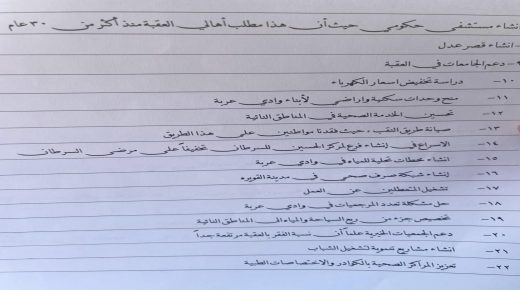 انشاء مستشفى حكومي حيث أن هذا مطلب أهالي العقبة منذ أكثر من ٣٠ عام
- انشاء قصر عدل
٩- دعم الجامعات في العقبة
١٠- دراسة تخفيض اسعار الكهرباء
١١- منح وحدات سكنية واراضي لأبناء وادي عربة
١٢- تحسين الخدمة الصحية في المناطق النائية
١٣- صيانة طريق النقب، حيث فقدنا مواطنين على هذا الطريق
١٤- الاسراع في إنشاء فرع لمركز الحسين للسرطان تخفيفاً على مرضى السرطان
١٥- انشاء محطات تحلية للمياه في وادي عربة
١٦- إنشاء شبكة صرف صحي في مدينة القويره
١٧- تشغيل المتعطلين عن العمل
١٨- حل مشكلة تعدد المرجعيات في وادي عربة
١٩- تخصيص جزء من ريع السياحة والمياه الى المناطق النائية
٢٠- دعم الجمعيات الخيرية علماً أن نسبة الفقر بالعقبة مرتفعة جداً
٢١- انشاء مشاريع تنموية لتشغيل الشباب
٢٢- تعزيز المراكز الصحية بالكوادر والاختصاصات الطبية